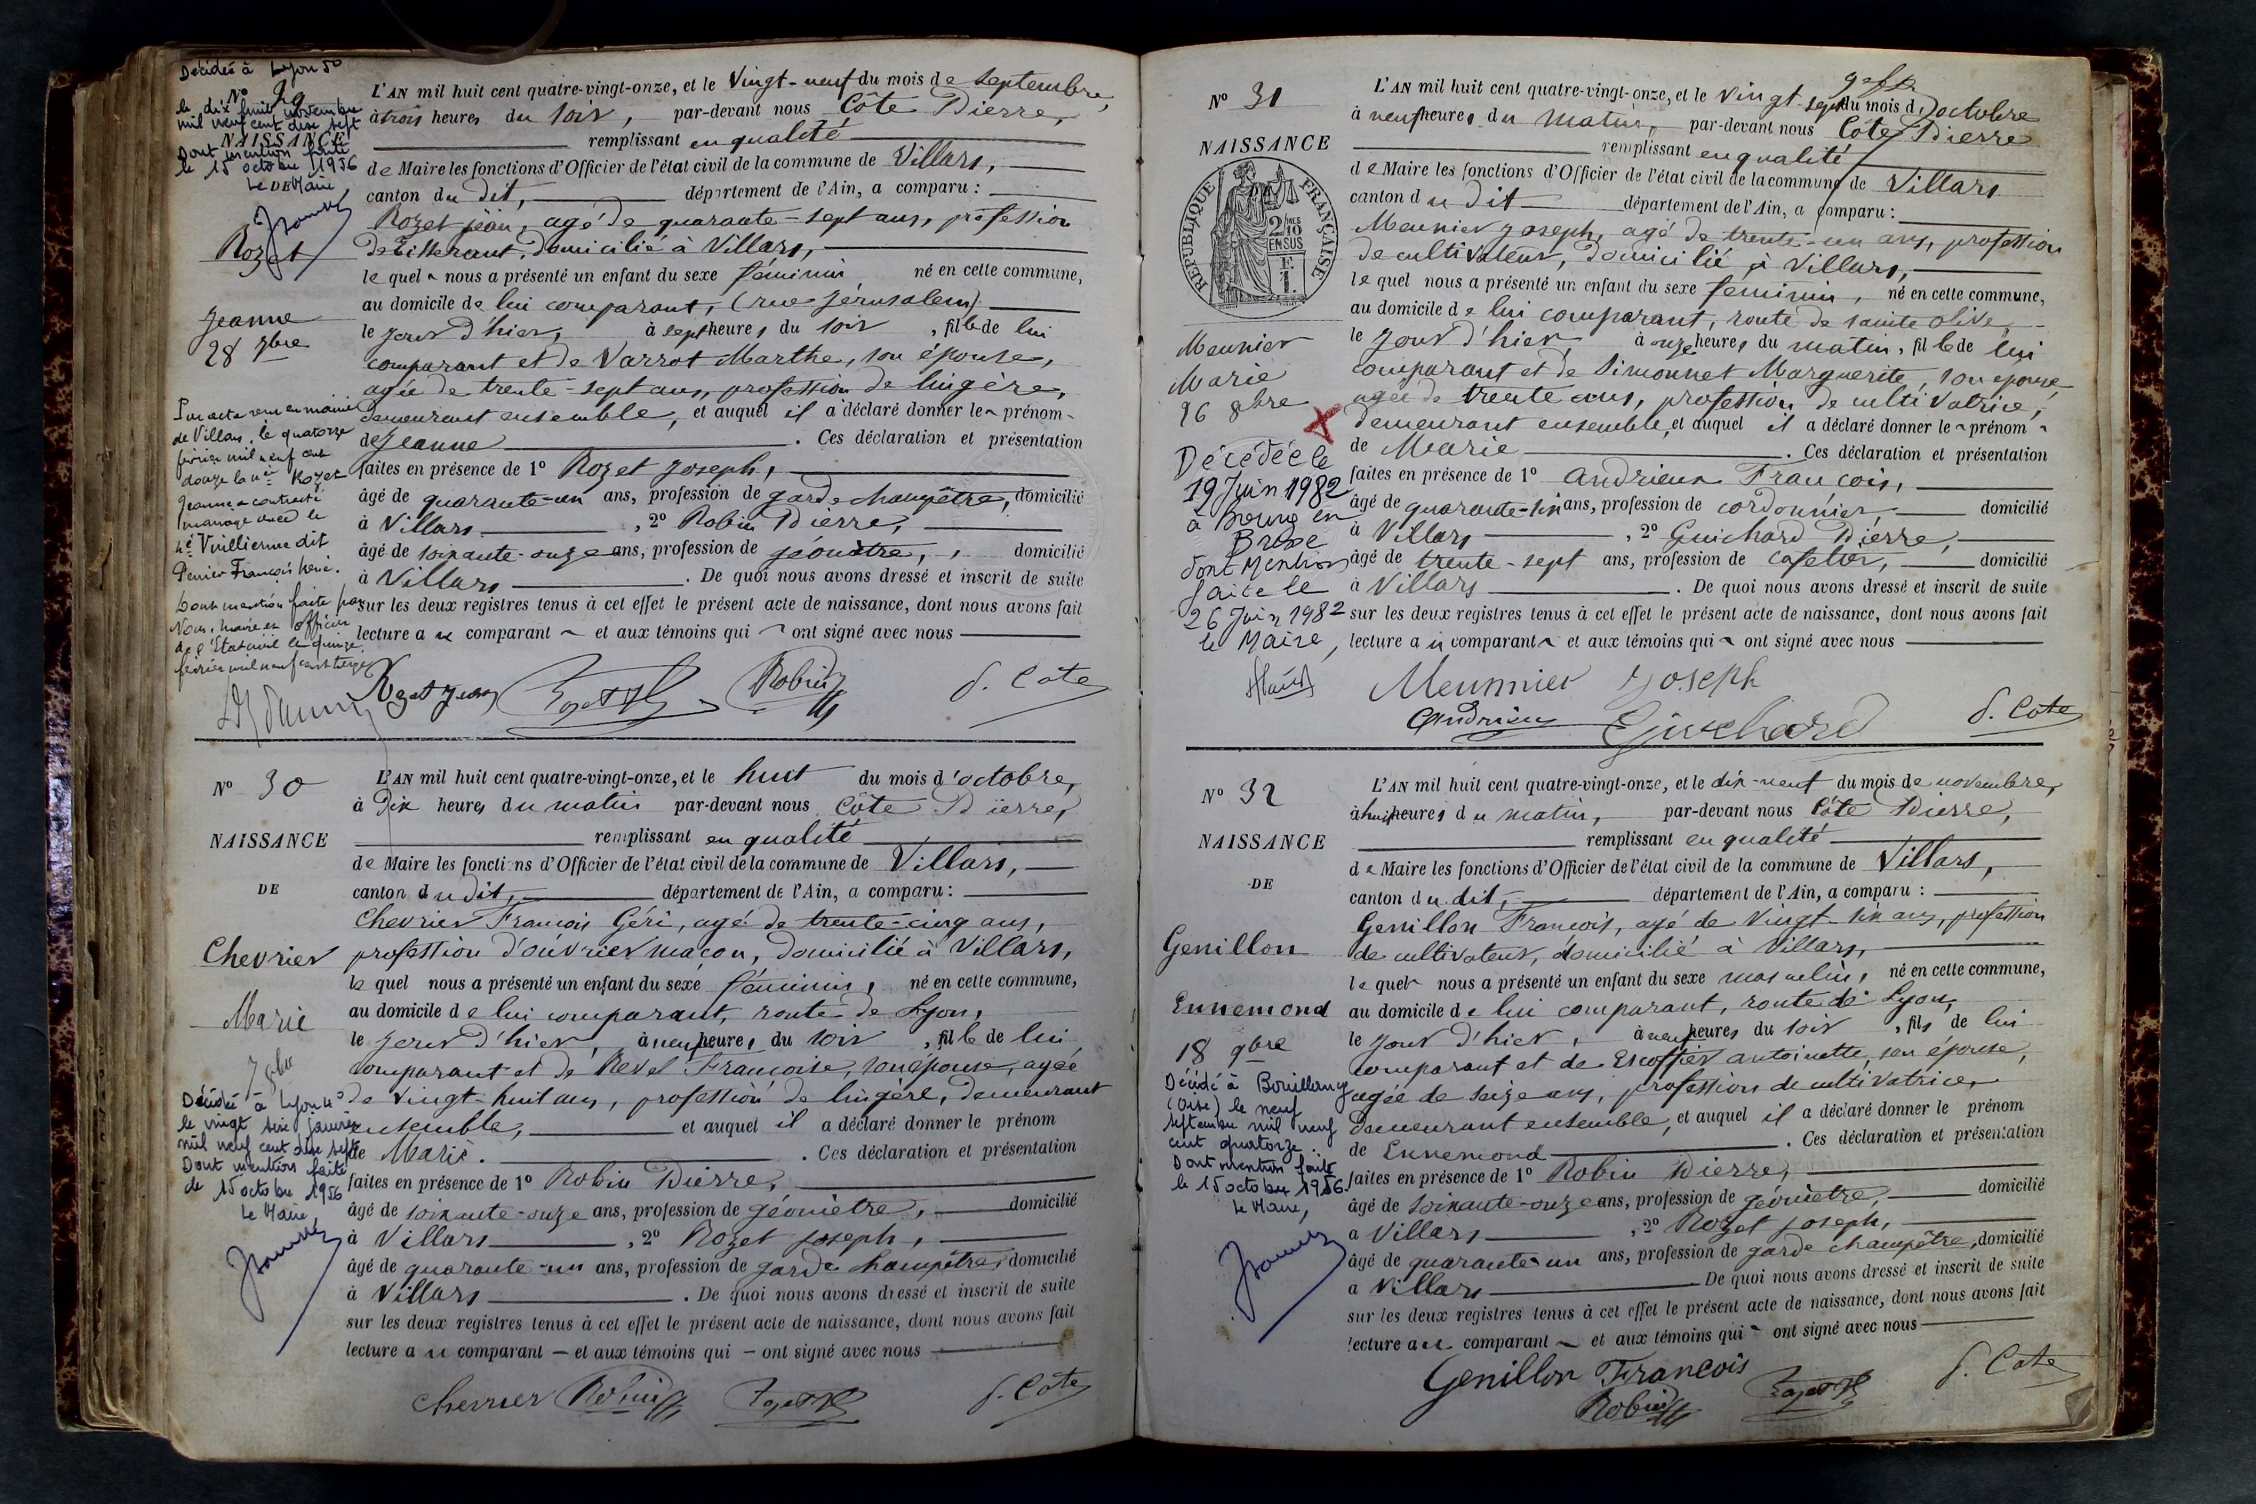 Décédée à Lyon 5e
No 29
le dix huit novembre
mil neuf cent dix sept
NAISSANCE
Dont mention faite
le 15 octobre 1956
Le Maire,
Rozet
Jeanne
28 7bre
Par acte reçu en mairie
de Villars, le quatorze
février mil neuf cent
douze la née Rozet
Jeanne a contracté
mariage avec le
né Vuillierme dit
Perrier François René.
Dont mention faite par
Nous, maire et officier
de l'Etat civil le quinze
février mil neuf cent treize
L'AN mil huit cent quatre-vingt-onze, et le Vingt-neuf du mois de septembre,
à trois heures du soir, par-devant nous Côte Pierre,
remplissant en qualité
de Maire les fonctions d'Officier de l'état civil de la commune de Villars,
canton du dit, département de l'Ain, a comparu :
Rozet jean, agé de quarante-sept ans, profession
de Tisserant, domicilié à Villars,
le quel nous a présenté un enfant du sexe féminin né en cette commune,
au domicile de lui comparant, (rue Jérusalem)
le jour d'hier, à sept heures du soir, fille de lui
comparant et de Varrot Marthe, son épouse,
agée de trente-sept ans, profession de lingère,
demeurant ensemble, et auquel il a déclaré donner le prénom
de Jeanne. Ces déclaration et présentation
faites en présence de 1o Rozet Joseph,
âgé de quarante-un ans, profession de garde champêtre, domicilié
à Villars, 2o Robin Pierre,
âgé de soixante-onze ans, profession de géomètre, domicilié
à Villars. De quoi nous avons dressé et inscrit de suite
sur les deux registres tenus à cet effet le présent acte de naissance, dont nous avons fait
lecture au comparant et aux témoins qui ont signé avec nous
Rozet Jean Rozet Robin P. Cote
No 30
NAISSANCE
DE
Chevrier
Marie
7 8bre
Décédée à Lyon 4e
le vingt six janvier
mil neuf cent dix sept
Dont mention faite
le 15 octobre 1956
Le Maire,
L'AN mil huit cent quatre-vingt-onze, et le huit du mois d'octobre,
à Dix heures du matin par-devant nous Côte Pierre,
remplissant en qualité
de Maire les fonctions d'Officier de l'état civil de la commune de Villars,
canton du dit, département de l'Ain, a comparu :
Chevrier François Géri, agé de trente-cinq ans,
profession d'ouvrier maçon, domicilié à Villars,
le quel nous a présenté un enfant du sexe féminin, né en cette commune,
au domicile de lui comparant, route de Lyon,
le jour d'hier, à neuf heures du soir, fille de lui
comparant et de Revel Françoise, son épouse, agée
de vingt-huit ans, profession de lingère, demeurant
ensemble, et auquel il a déclaré donner le prénom
de Marie. Ces déclaration et présentation
faites en présence de 1o Robin Pierre,
âgé de soixante-onze ans, profession de géomètre, domicilié
à Villars, 2o Rozet joseph,
âgé de quarante-un ans, profession de garde champêtre, domicilié
à Villars. De quoi nous avons dressé et inscrit de suite
sur les deux registres tenus à cet effet le présent acte de naissance, dont nous avons fait
lecture au comparant et aux témoins qui ont signé avec nous
chevrier Robin Rozet P. Cote
No 31
NAISSANCE
REPUBLIQUE FRANÇAISE
2/10 EN SUS
F. 1.
Meunier
Marie
26 8bre
X
Décédée le
19 Juin 1982
à Bourg en
Bresse
dont Mention
faite le
26 Juin 1982
le Maire,
L'AN mil huit cent quatre-vingt-onze, et le vingt-sept du mois d'octobre
à neuf heures du matin, par-devant nous Côte Pierre
remplissant en qualité
de Maire les fonctions d'Officier de l'état civil de la commune de Villars
canton du dit département de l'Ain, a comparu :
Meunier joseph, agé de trente-un ans, profession
de cultivateur, domicilié à Villars,
le quel nous a présenté un enfant du sexe féminin, né en cette commune,
au domicile de lui comparant, route de sainte olive,
le jour d'hier, à onze heures du matin, fille de lui
comparant et de Simonnet Marguerite, son épouse
agée de trente ans, profession de cultivatrice,
demeurant ensemble, et auquel il a déclaré donner le prénom
de Marie. Ces déclaration et présentation
faites en présence de 1o andrieux François,
âgé de quarante-six ans, profession de cordonnier, domicilié
à Villars, 2o Guichard Pierre,
âgé de trente-sept ans, profession de cafetier, domicilié
à Villars. De quoi nous avons dressé et inscrit de suite
sur les deux registres tenus à cet effet le présent acte de naissance, dont nous avons fait
lecture au comparant et aux témoins qui ont signé avec nous
Meunnier Joseph
Andrieux Guichard P. Cote
No 32
NAISSANCE
DE
Genillon
Ennemond
18 9bre
Décédé à Bouillancy
(Oise) le neuf
septembre mil neuf
cent quatorze.
Dont mention faite
le 15 octobre 1956.
Le Maire,
L'AN mil huit cent quatre-vingt-onze, et le dix-neuf du mois de novembre,
à huit heures du matin, par-devant nous Côte Pierre,
remplissant en qualité
de Maire les fonctions d'Officier de l'état civil de la commune de Villars,
canton du dit, département de l'Ain, a comparu :
Genillon François, agé de Vingt-six ans, profession
de cultivateur, domicilié à Villars,
le quel nous a présenté un enfant du sexe masculin, né en cette commune,
au domicile de lui comparant, route de Lyon,
le jour d'hier, à neuf heures du soir, fils de lui
comparant et de Escoffier antoinette, son épouse,
agée de seize ans, profession de cultivatrice,
demeurant ensemble, et auquel il a déclaré donner le prénom
de Ennemond. Ces déclaration et présentation
faites en présence de 1o Robin Pierre,
âgé de soixante-onze ans, profession de géomètre, domicilié
à Villars, 2o Rozet joseph,
âgé de quarante-un ans, profession de garde champêtre, domicilié
à Villars. De quoi nous avons dressé et inscrit de suite
sur les deux registres tenus à cet effet le présent acte de naissance, dont nous avons fait
lecture au comparant et aux témoins qui ont signé avec nous
Genillon Francois
Robin Rozet P. Cote